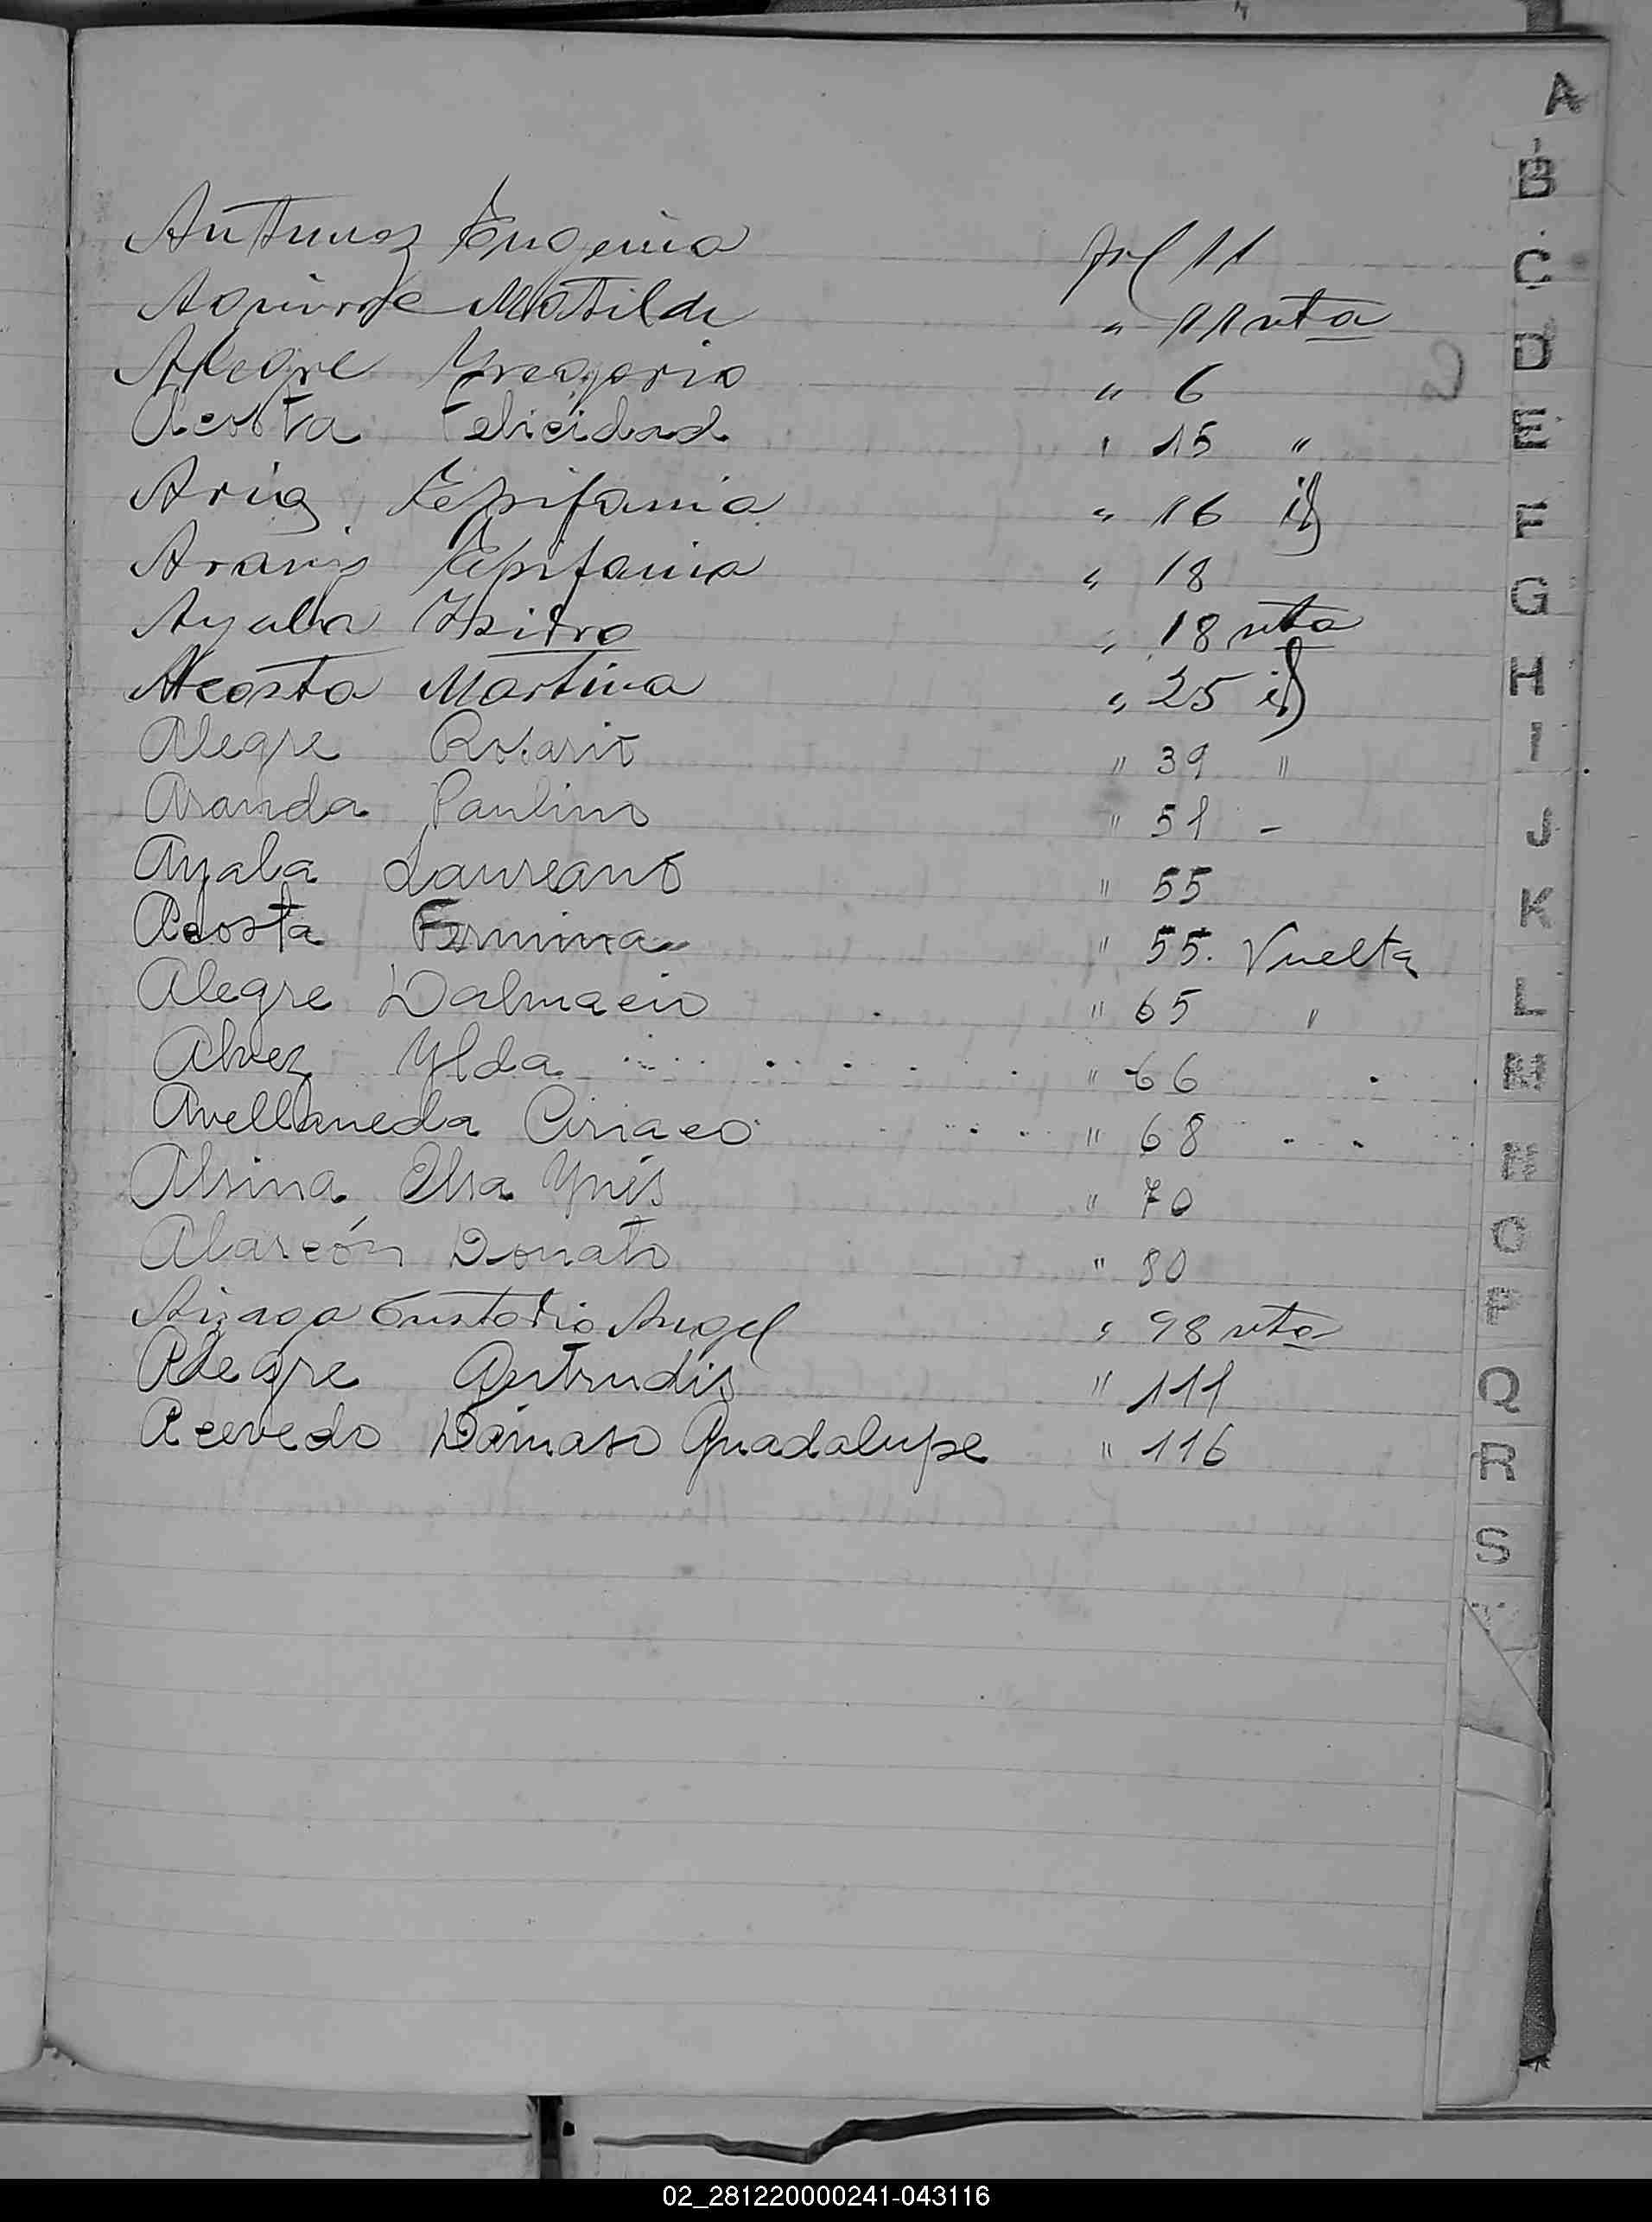 A
B
C
D
E
F
G
H
I
J
K
L
M
N
O
P
Q
R
S
Antunez Eugenia fol 11
Aguirre Matilde " 11 vta
Alegre Gregorio " 6
Acosta Felicidad " 15 "
Epifania " 16 id
Epifania " 18
Ayala Isidro " 18 vta
Acosta Martina " 25 id
Alegre Rosario " 39 "
Aranda Paulino " 51 -
Ayala Laureano " 55
Acosta Fermina " 55. Vuelta
Alegre Dalmacio " 65 "
Alvez Ylda " 66
Avellaneda Ciriaco " 68
Alsina Elsa Ynés " 70
Alarcón Donato " 80
Custodio Angel " 98 vta
Alegre Gertrudis " 111
Acevedo Dámaso Guadalupe " 116
02_281220000241-043116